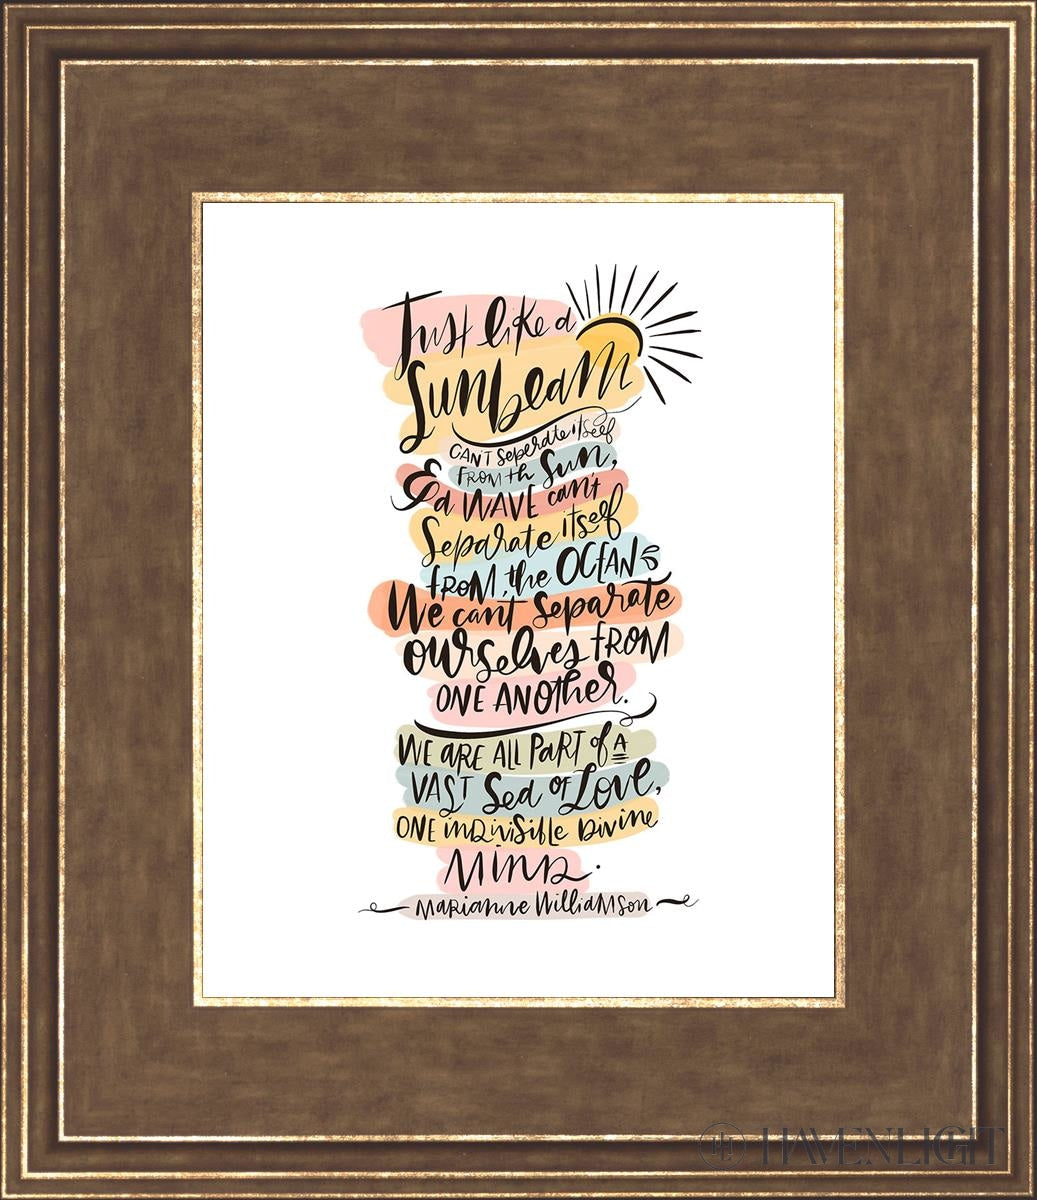 Just like a
Sunbeam
CAN'T Seperate itself
FROM th Sun,
& a WAVE can't
Separate itself
FROM the OCEAN
We can't Separate
ourselves FROM
ONE ANOther.
WE ARE ALL PART of A
VAST Sea OF Love,
ONE inDiviSible Divine
MinD.
MaRianne WilliaMSon
HAVENLIGHT